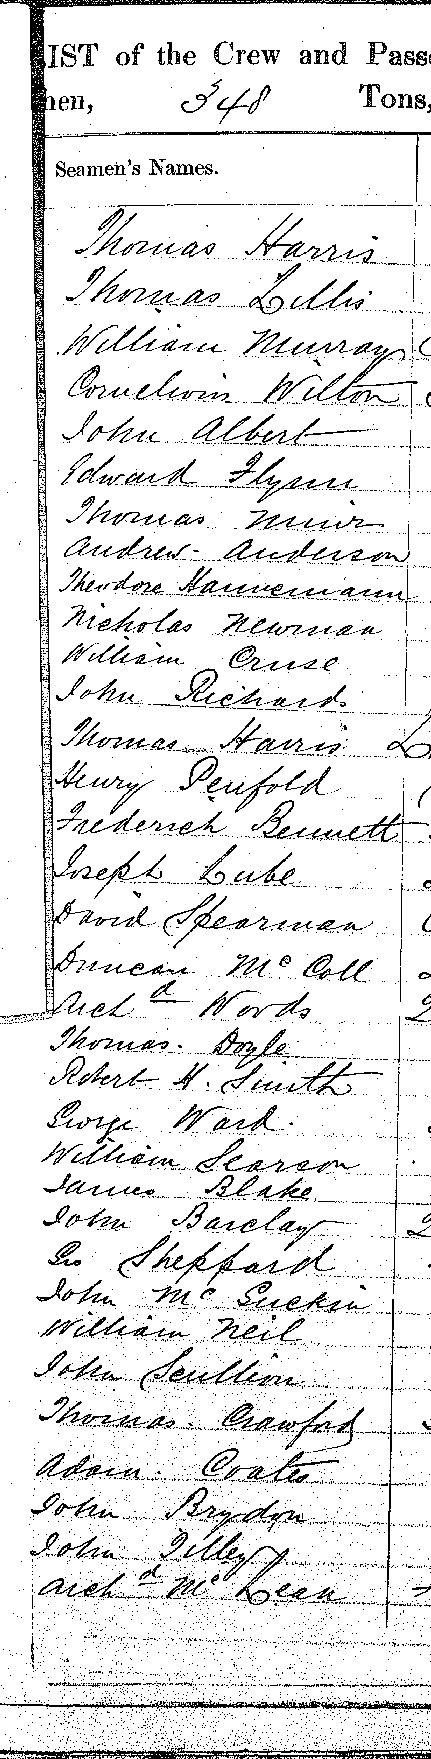 IST of the Crew and Passe
hen, 348 Tons,
Seamen's Names.
Thomas Harris
Thomas Lillis
William Murray
Cornelius Wilton
John Albert
Edward Flynn
Thomas Muir
Andrew Anderson
Theodore Hannemann
Nicholas Newman
William Cruse
John Richards
Thomas Harris
Henry Penfold
Frederich Bennett
Joseph Lube
David Spearman
Duncan Mc Coll
Archd Woods
Thomas Doyle
Robert H. Smith
George Ward
William Searson
James Blake
John Barclay
Geo Sheppard
John Mc Guckin
William Neil
John Scullion
Thomas Crawford
Adam Coates
John Brydon
John Tilley
Archd Mc Lean